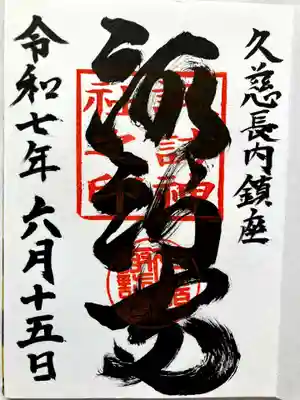 久慈長内鎮座
諏訪
諏訪神
社之印
令和七年六月十五日